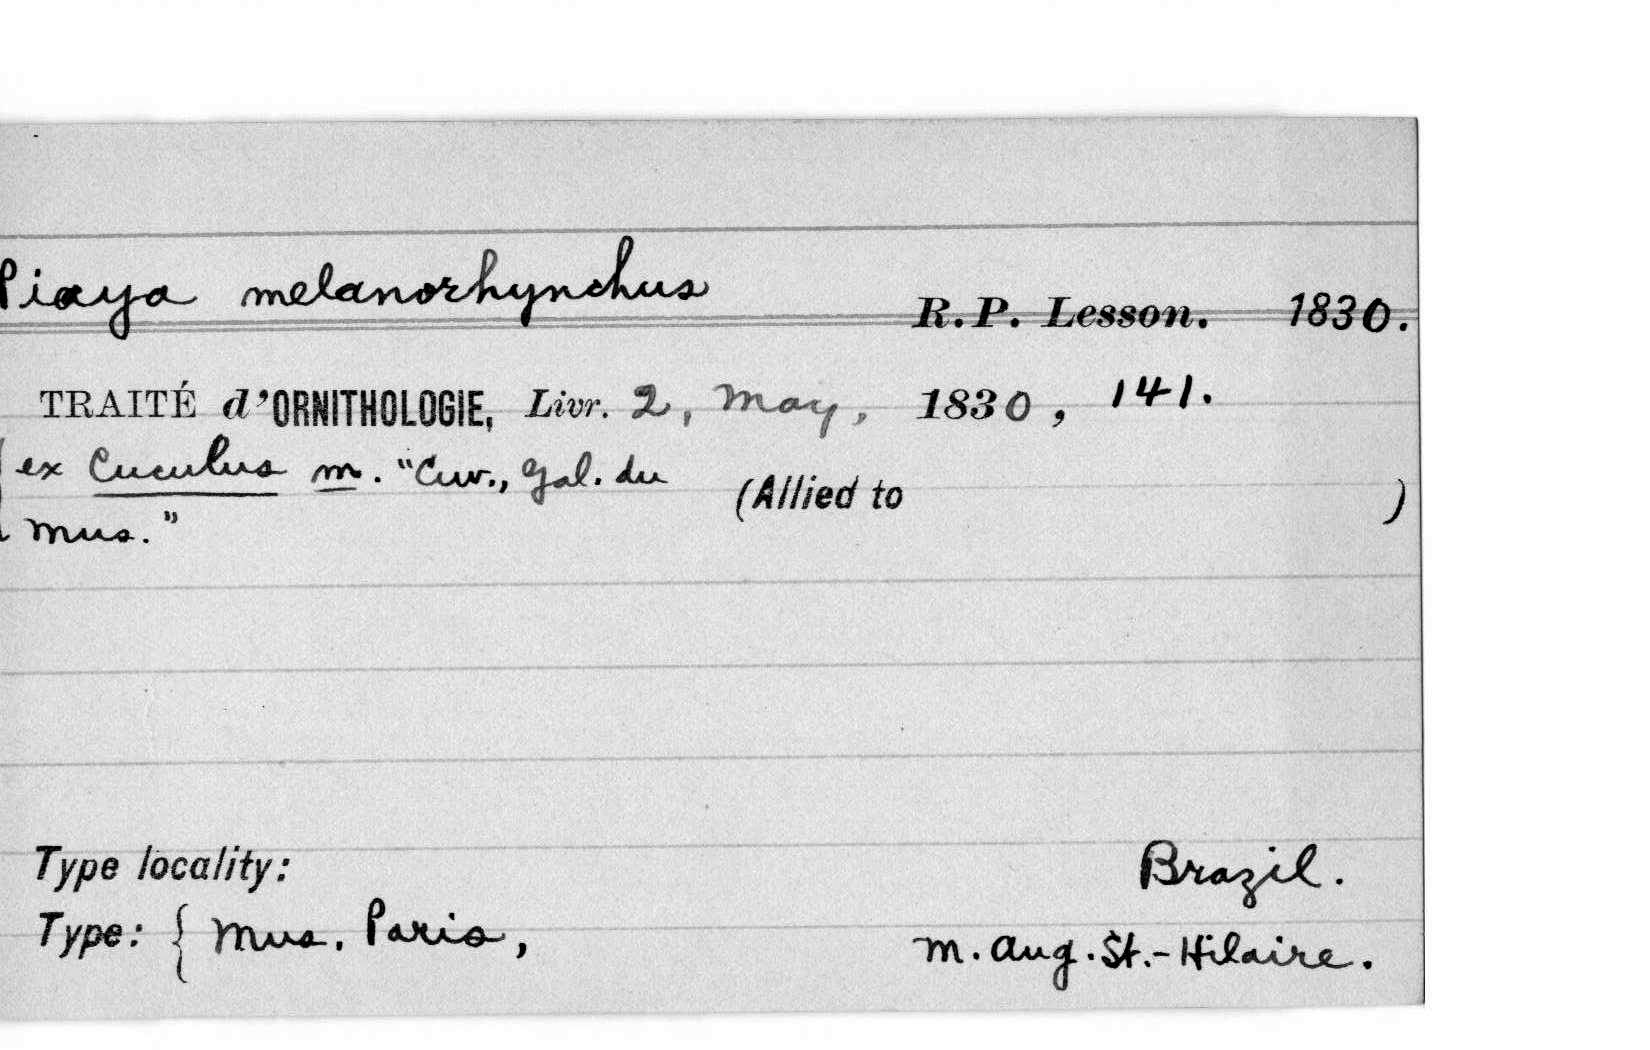 Piaya melanorhynchus R.P. Lesson. 1830.
TRAITÉ d'ORNITHOLOGIE, Livr. 2, May, 1830, 141.
ex Cuculus m. "Cuv., Gal. du (Allied to )
Mus."
Type locality: Brazil.
Type: { Mus. Paris, M. Aug. St.-Hilaire.